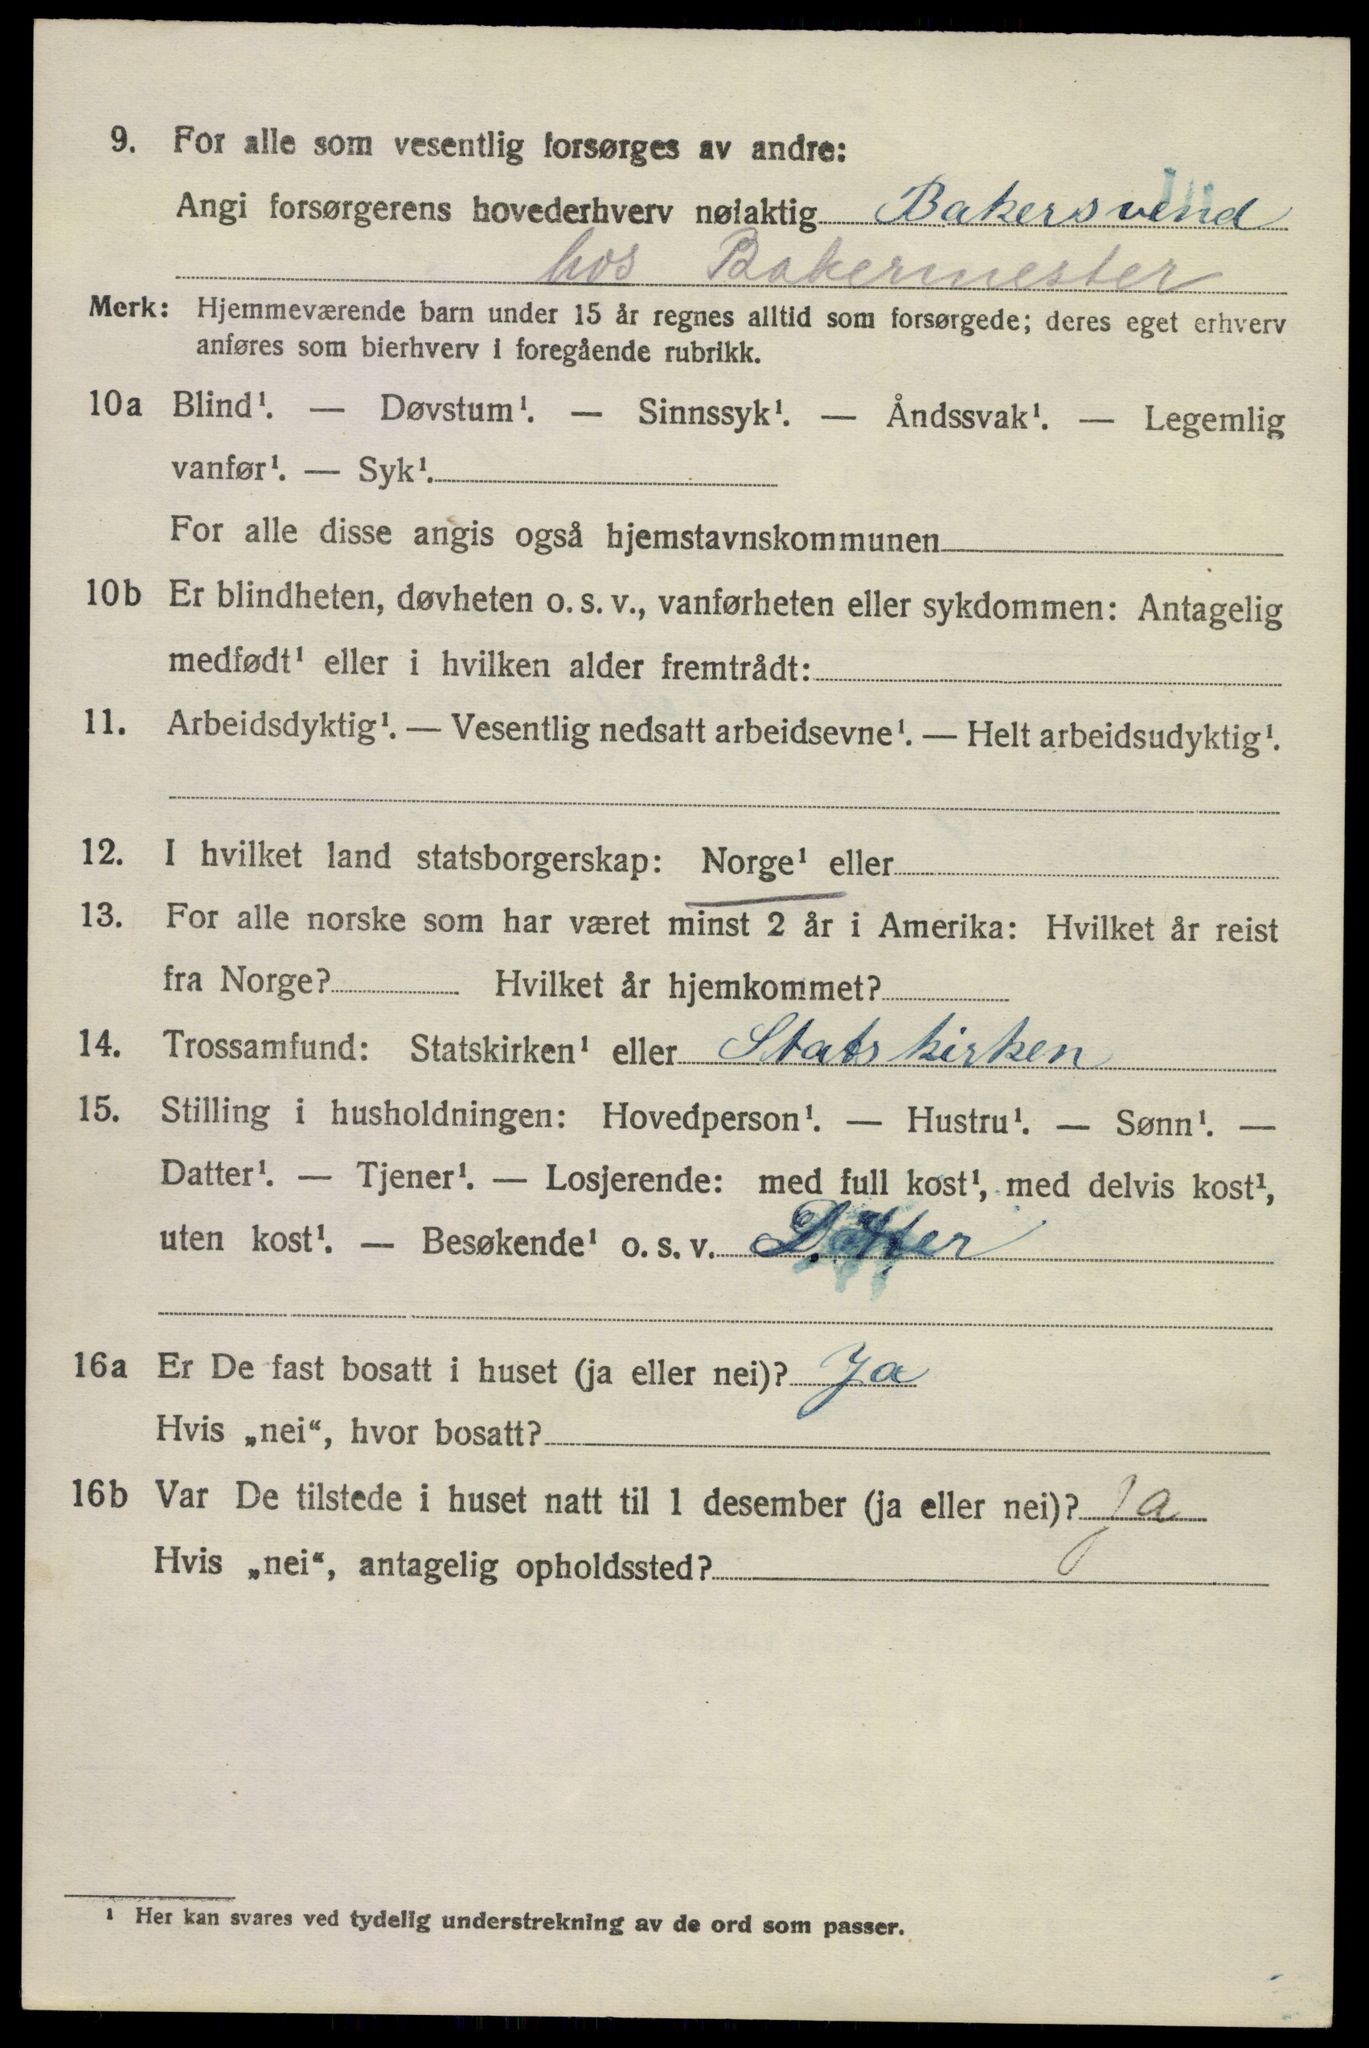 9. For alle som vesentlig forsørges av andre:
Angi forsørgerens hovederhverv nøiaktig Bakersvend
hos Bakermester
Merk: Hjemmeværende barn under 15 år regnes alltid som forsørgede; deres eget erhverv
anføres som bierhverv i foregående rubrikk.
10a Blind¹. — Døvstum¹. — Sinnssyk¹. — Åndssvak¹. — Legemlig
vanfør¹. — Syk¹.
For alle disse angis også hjemstavnskommunen
10b Er blindheten, døvheten o. s. v., vanførheten eller sykdommen: Antagelig
medfødt¹ eller i hvilken alder fremtrådt:
11. Arbeidsdyktig¹. — Vesentlig nedsatt arbeidsevne¹. — Helt arbeidsudyktig¹.
12. I hvilket land statsborgerskap: Norge¹ eller
13. For alle norske som har været minst 2 år i Amerika: Hvilket år reist
fra Norge? Hvilket år hjemkommet?
14. Trossamfund: Statskirken¹ eller Statskirken
15. Stilling i husholdningen: Hovedperson¹. — Hustru¹. — Sønn¹. —
Datter¹. — Tjener¹. — Losjerende: med full kost¹, med delvis kost¹,
uten kost¹. — Besøkende¹ o. s. v. Datter
16a Er De fast bosatt i huset (ja eller nei)? Ja
Hvis „nei“, hvor bosatt?
16b Var De tilstede i huset natt til 1 desember (ja eller nei)? Ja
Hvis „nei“, antagelig opholdssted?
¹ Her kan svares ved tydelig understrekning av de ord som passer.